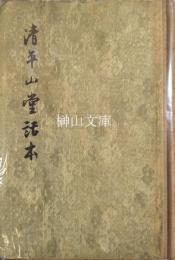 清平山堂話本
榊山文庫